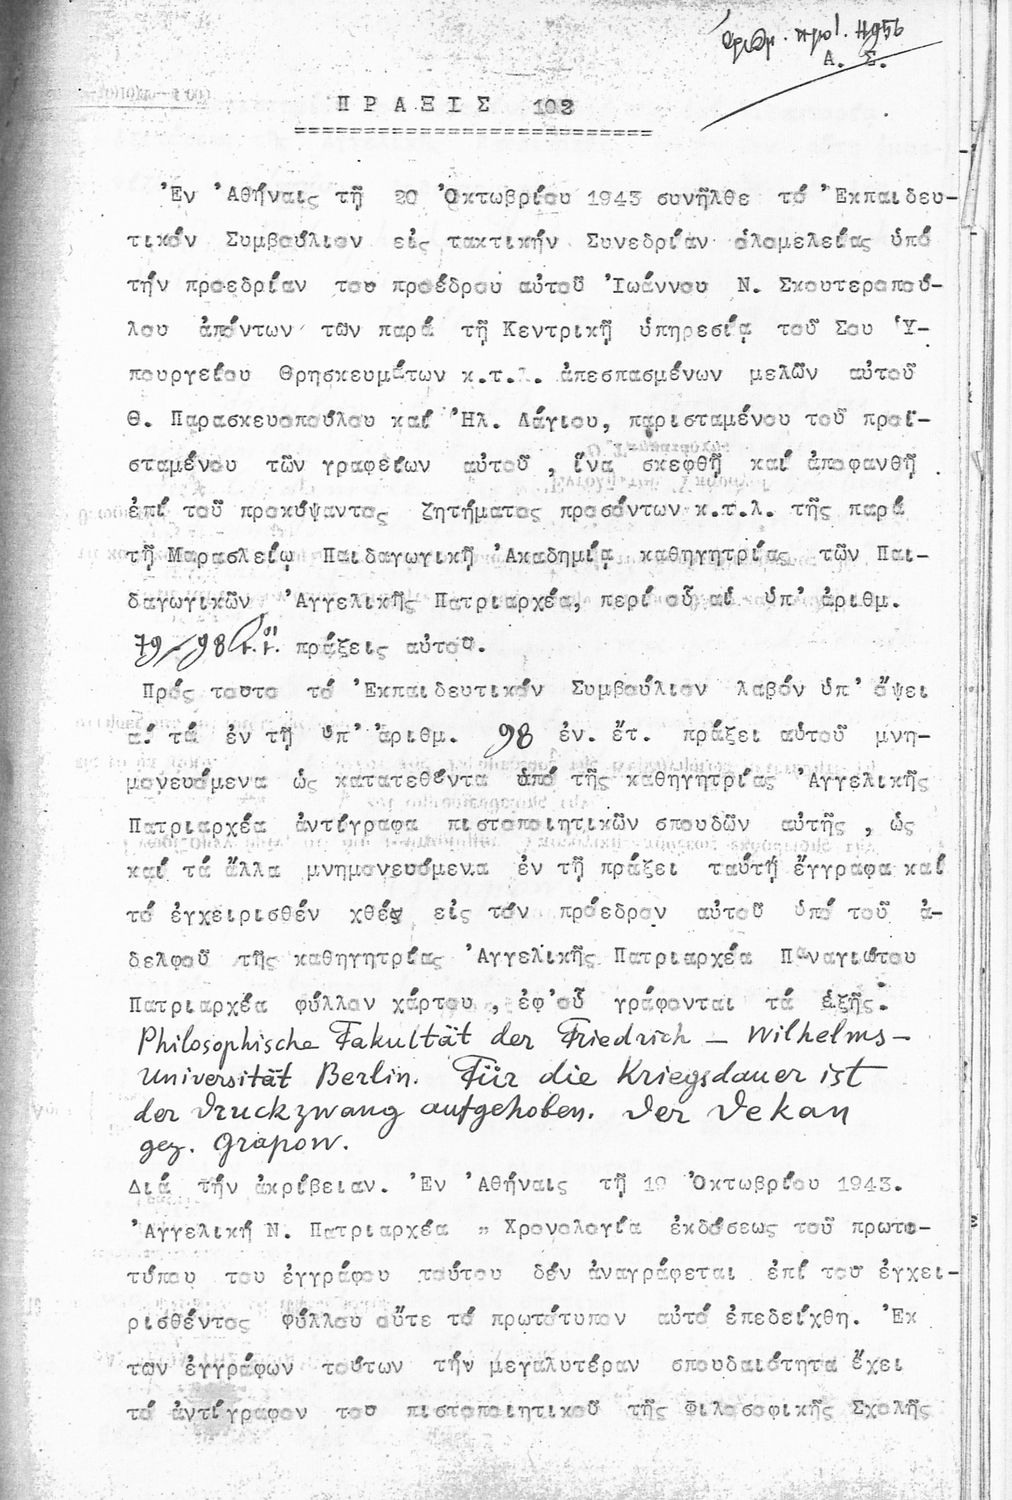 ἀριθμ. πρωτ.
Α. Σ.
ΠΡΑΞΙΣ 102
Ἐν Ἀθήναις τῇ 20 Ὀκτωβρίου 1943 συνῆλθε τό Ἐκπαιδευ-
τικόν Συμβούλιον εἰς τακτικήν Συνεδρίαν ὁλομελείας ὑπό
τήν προεδρίαν του προέδρου αὐτοῦ Ἰωάννου Ν. Σκουτεροπού-
λου ἀπόντων τῶν παρά τῇ Κεντρικῇ ὑπηρεσίᾳ τοῦ Σου Ὑ-
πουργείου Θρησκευμάτων κ.τ.λ. ἀπεσπασμένων μελῶν αὐτοῦ
Θ. Παρασκευοπούλου καί Ἠλ. Λάγιου, παρισταμένου τοῦ προϊ-
σταμένου τῶν γραφείων αὐτοῦ , ἵνα σκεφθῇ καί ἀποφανθῇ
ἐπί τοῦ προκύψαντος ζητήματος προσόντων κ.τ.λ. τῆς παρά
τῇ Μαρασλείῳ Παιδαγωγικῇ Ἀκαδημίᾳ καθηγητρίας τῶν Παι-
δαγωγικῶν Ἀγγελικῆς Πατριαρχέα, περί οὗ αἱ ὑπ' ἀριθμ.
79-98 ἐ.ἔ. πράξεις αὐτοῦ.
Πρός τουτο τό Ἐκπαιδευτικόν Συμβούλιον λαβόν ὑπ' ὄψει
α) τά ἐν τῇ ὑπ' ἀριθμ. 98 ἐν. ἔτ. πράξει αὐτοῦ μνη-
μονευόμενα ὡς κατατεθέντα ὑπό τῆς καθηγητρίας Ἀγγελικῆς
Πατριαρχέα ἀντίγραφα πιστοποιητικῶν σπουδῶν αὐτῆς , ὡς
καί τά ἄλλα μνημονευόμενα ἐν τῇ πράξει ταύτῃ ἔγγραφα καί
τό ἐγχειρισθέν χθές εἰς τόν πρόεδρον αὐτοῦ ὑπό τοῦ ἀ-
δελφοῦ τῆς καθηγητρίας Ἀγγελικῆς Πατριαρχέα Παναγιώτου
Πατριαρχέα φύλλον χάρτου , ἐφ'οὗ γράφονται τά ἑξῆς.
Philosophische Fakultät der Friedrich – Wilhelms-
Universität Berlin. Für die Kriegsdauer ist
der Druckzwang aufgehoben. Der Dekan
gez. Grapow.
Διά τήν ἀκρίβειαν. Ἐν Ἀθήναις τῇ 19 Ὀκτωβρίου 1943.
Ἀγγελική Ν. Πατριαρχέα " Χρονολογία ἐκδόσεως τοῦ πρωτο-
τύπου του ἐγγράφου τούτου δέν ἀναγράφεται ἐπί του ἐγχει-
ρισθέντος φύλλου οὔτε τό πρωτότυπον αὐτό ἐπεδείχθη. Ἐκ
των ἐγγράφων τούτων τήν μεγαλυτέραν σπουδαιότητα ἔχει
τό ἀντίγραφον του πιστοποιητικοῦ τῆς Φιλοσοφικῆς Σχολῆς